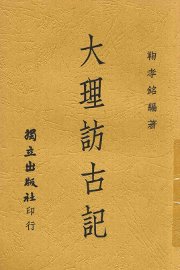 鞠孝銘編著
大理訪古記
獨立出版社印行